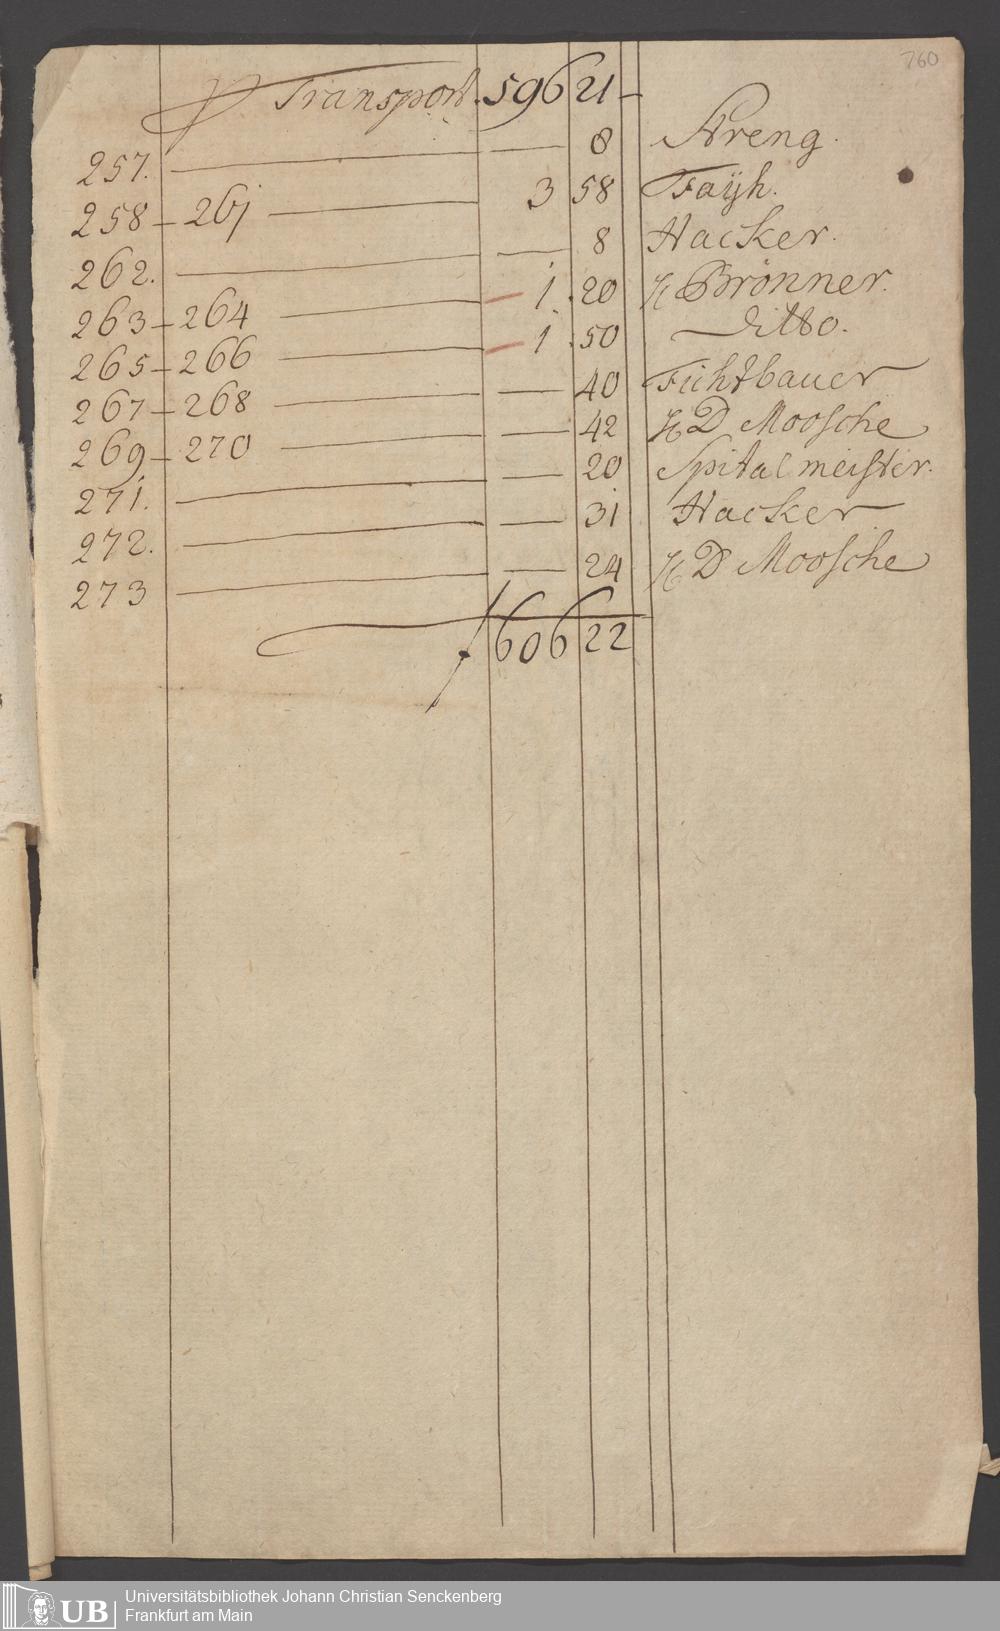 760
P Transport. 596 21 –
257. — — 8 Streng.
258 – 261 — 3 58 Faÿh.
262. — — 8 Hacker.
263 – 264 — 1. 20 H Brönner.
265 – 266 — 1. 50 ditto.
267 – 268 — — 40 Fichtbauer
269 – 270 — — 42 H D Moosche
271. — — 20 Spitalmeister.
272. — — 31 Hacker
273 — — 24 H D Moosche
f 606 22
UB Universitätsbibliothek Johann Christian Senckenberg
Frankfurt am Main